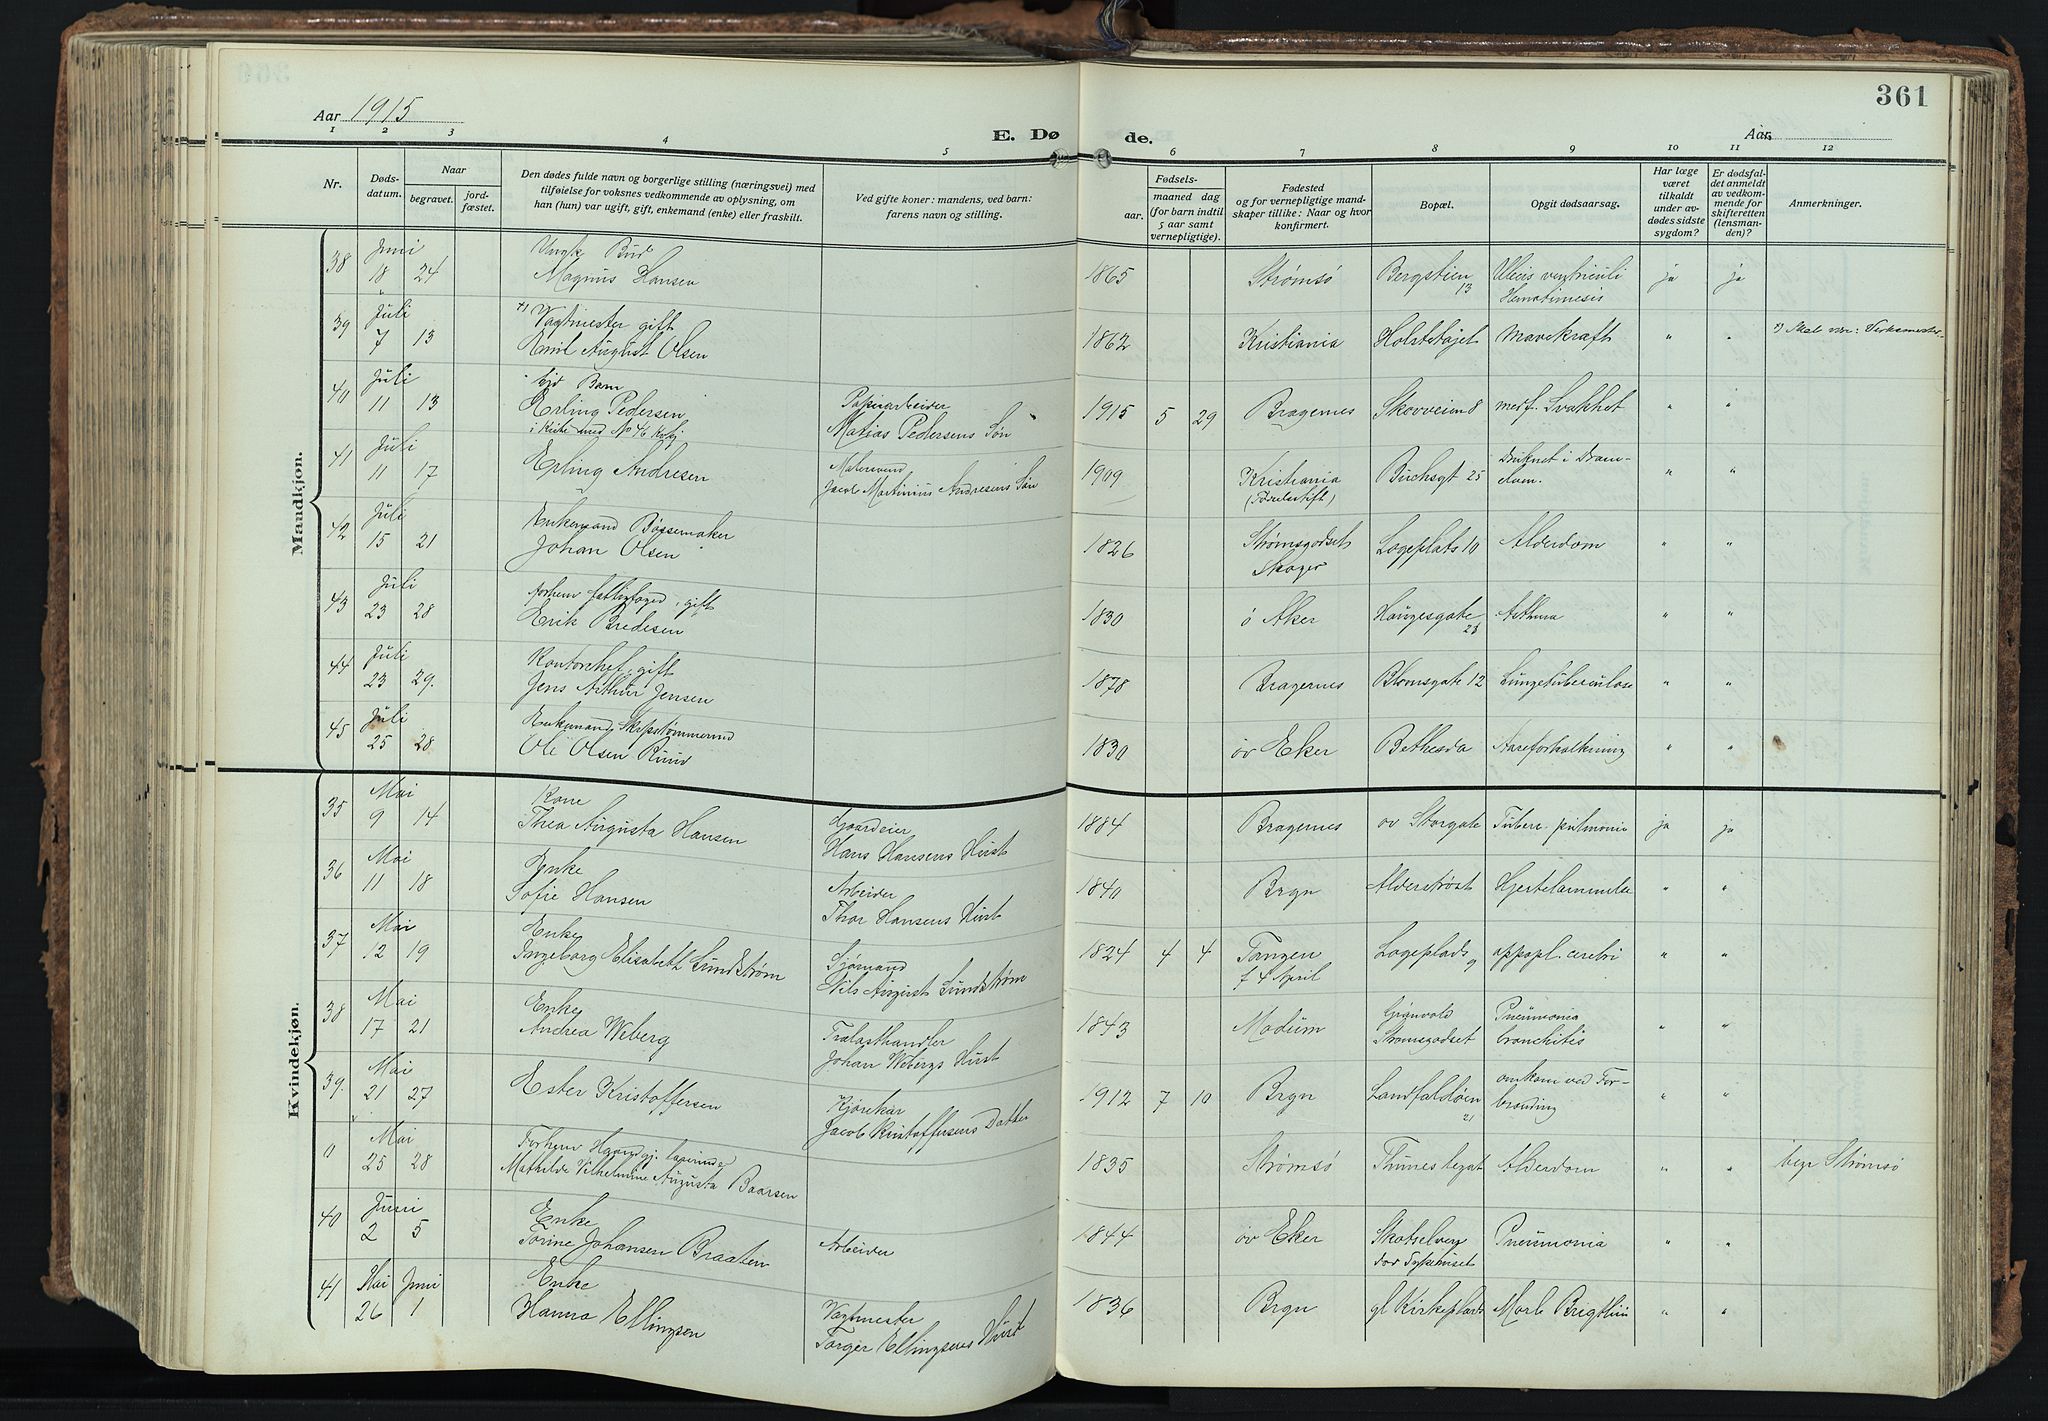 361
Aar 1915
E. Dø de.
Aar
1 2 3 4 5 6 7 8 9 10 11 12
Nr.
Døds-
datum.
Naar
begravet.
jord-
fæstet.
Den dødes fulde navn og borgerlige stilling (næringsvei) med
tilføielse for voksnes vedkommende av oplysning, om
han (hun) var ugift, gift, enkemand (enke) eller fraskilt.
Ved gifte koner: mandens, ved barn:
farens navn og stilling.
Fødsels-
aar. maaned dag
(for barn indtil
5 aar samt
vernepligtige).
Fødested
og for vernepligtige mand-
skaper tillike: Naar og hvor
konfirmert.
Bopæl.
Opgit dødsaarsag.
Har læge
været
tilkaldt
under av-
dødes sidste
sygdom?
Er dødsfal-
det anmeldt
av vedkom-
mende for
skifteretten
(lensman-
den)?
Anmerkninger.
Mandkjøn.
38 Juni Bud
18 24 Magnus Hansen 1865 Strømsø Bergstien 13 Ulcus ventriculi ja ja
39 Juli Vagtmester gift
7 13 Emil August Olsen 1862 Kristiania Mavekræft " "
40 Juli Barn
11 13 Erling Pedersen Papirarbeider 1915 5 29 Bragernes Skovveien 8 medf. Svakhet " "
Matias Pedersens Søn
41 Juli
11 17 Erling Andresen Malersvend 1909 Kristiania Buchsgt 25 Druknet i Dram- " "
Jacob Martinius Andresens Søn
42 Juli Enkemand Bøssemaker
15 21 Johan Olsen 1826 Strømsgodset Løgeplats 10 Alderdom " "
Skoger
43 Juli gift
23 28 Erik Bredesen 1830 ø Aker Haugesgate Asthma " "
44 Juli gift
23 29. Jens Arthur Jensen 1878 Bragernes Blomsgate 12 Lungetuberculose " "
45 Juli Enkemand Skipstømmermd
25 28 Ole Olsen Ruud 1830 øv Eker Bethesda Aareforkalkning " "
Kvindekjøn.
35 Mai Kone
9 14 Thea Augusta Hansen Gaardeier 1884 Bragernes øv Storgate Tuberc. pulmonia ja ja
Hans Hansens Hust
36 Mai Enke
11 18 Sofie Hansen Arbeider 1840 Brgn Alderstrøst Hjertelammelse " "
Thor Hansens Hust
37 Mai Enke
12 19 Ingeborg Elisabeth Lundstrøm Sjømand 1824 4 4 Tangen Løgeplads 9 appopl. cerebri " "
Nils August Lundstrøm f 4 April
38 Mai Enke
17 21 Andrea Weberg Trælasthandler 1843 Modum Strømsgodset Pneumonia " "
Johan Webergs Hust bronchitis
39. Mai
21 27 Ester Kristoffersen Kjørekar 1912 7 10 Brgn Landfaldøen 21 omkom ved For- " "
Jacob Kristoffersens Datter brænding
0 Mai Forhenv
25 28 Mathilde Vilhelmine Augusta Baarsen 1835 Strømsø Thunes legat Alderdom " " begr Strømsø
40 Juni Enke
2 5 Torine Johansen Braaten Arbeider 1844 øv Eker Skotselven Pneumonia " "
41 Mai Juni Enke
26 1 Hanna Ellingsen Vagtmester 1836 Brgn gl Kirkeplads Morb Brigthii " "
Torger Ellingsens Hust